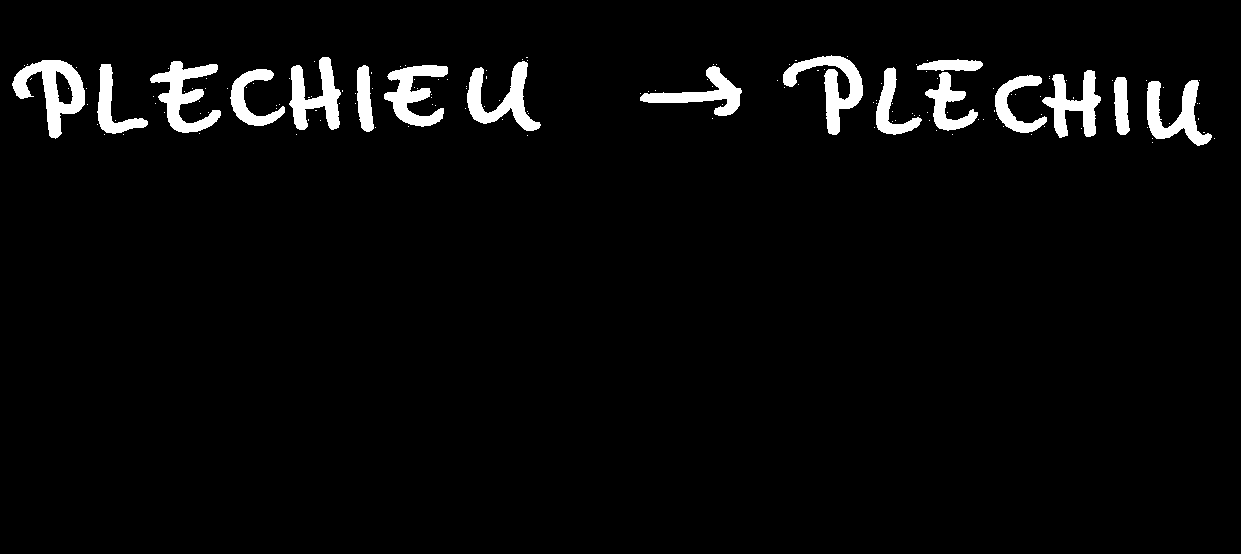 PLECHIEU → PLECHIU